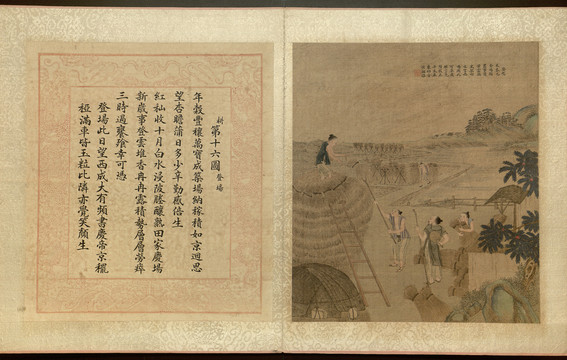 耕 第十六圖 登場
年穀豐穰萬寶成築場納稼積如京迴思
望杏瞻蒲日多少辛勤感倍生
紅秈收十月白水浸陂塍釀熟田家慶場
新歲事登雲堆香冉冉露積勢層層勞瘁
三時過饔飱幸可憑
登場此日望西成大有頻書慶帝京䆉
稏滿車皆玉粒比隣亦覺笑顏生